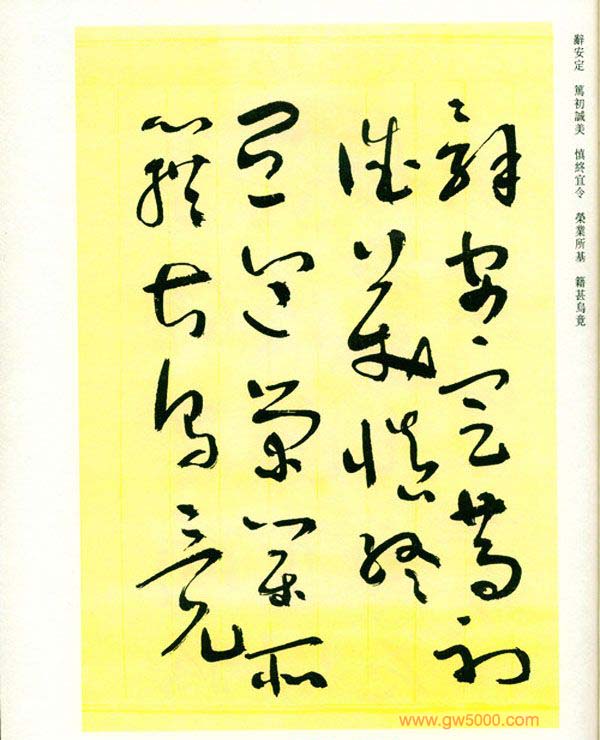 辭安定　篤初誠美　慎終宜令　榮業所基　籍甚烏竟
辭安定篤初
誠美慎終
宜令榮業所
籍甚烏竟
www.gw5000.com